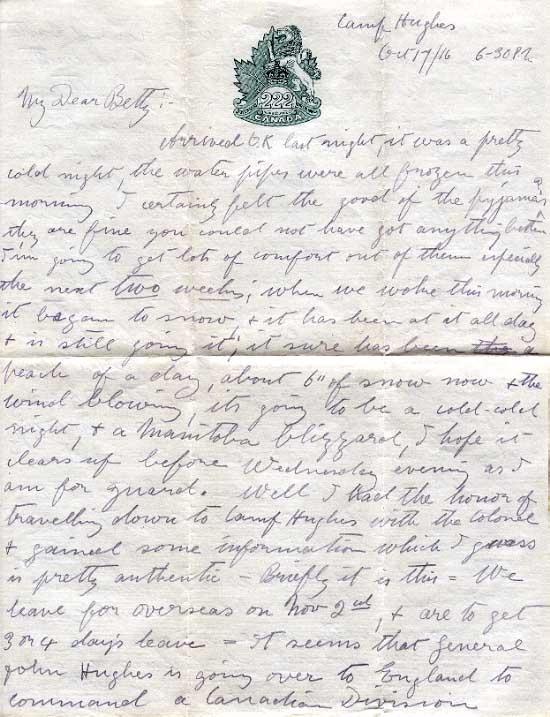 Camp Hughes
Oct 17/16 6-30 P.M.
222
CANADA
My Dear Betty:-
Arrived OK last night, it was a pretty
cold night, the water pipes were all frozen this
morning I certainly felt the good of the pyjamas
they are fine you could not have got anything better
I'm going to get lots of comfort out of them especially
the next two weeks; when we woke this morning
it began to snow, & it has been at it all day
& is still going it; it sure has been a
peach of a day, about 6" of snow now & the
wind blowing, its going to be a cold-cold
night, & a Manitoba blizzard, I hope it
clears up before Wednesday evening as I
am for guard. Well I had the honor of
travelling down to Camp Hughes with the Colonel
& gained some information which I guess
is pretty authentic - Briefly it is this = We
leave for overseas on Nov 2nd, & are to get
3 or 4 days leave = It seems that General
John Hughes is going over to England to
command a Canadian Division